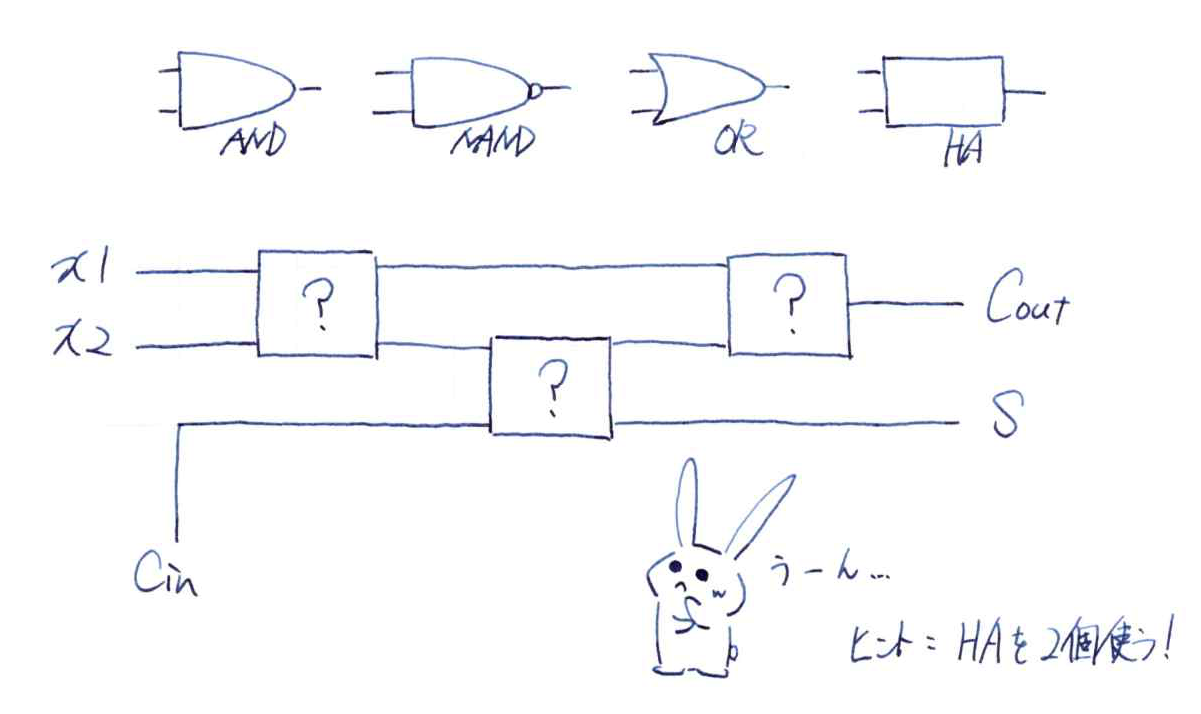 AND NAND OR HA
x1 ? ? Cout
x2 ?
S
Cin
うーん...
ヒント: HAを2個使う!